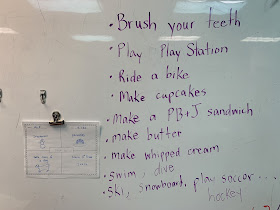 • Brush your teeth
• Play Play Station
• Ride a bike
• Make cupcakes
• Make a PB+J sandwich
• make butter
• make whipped cream
• swim, dive
• ski, snowboard, play soccer...
hockey